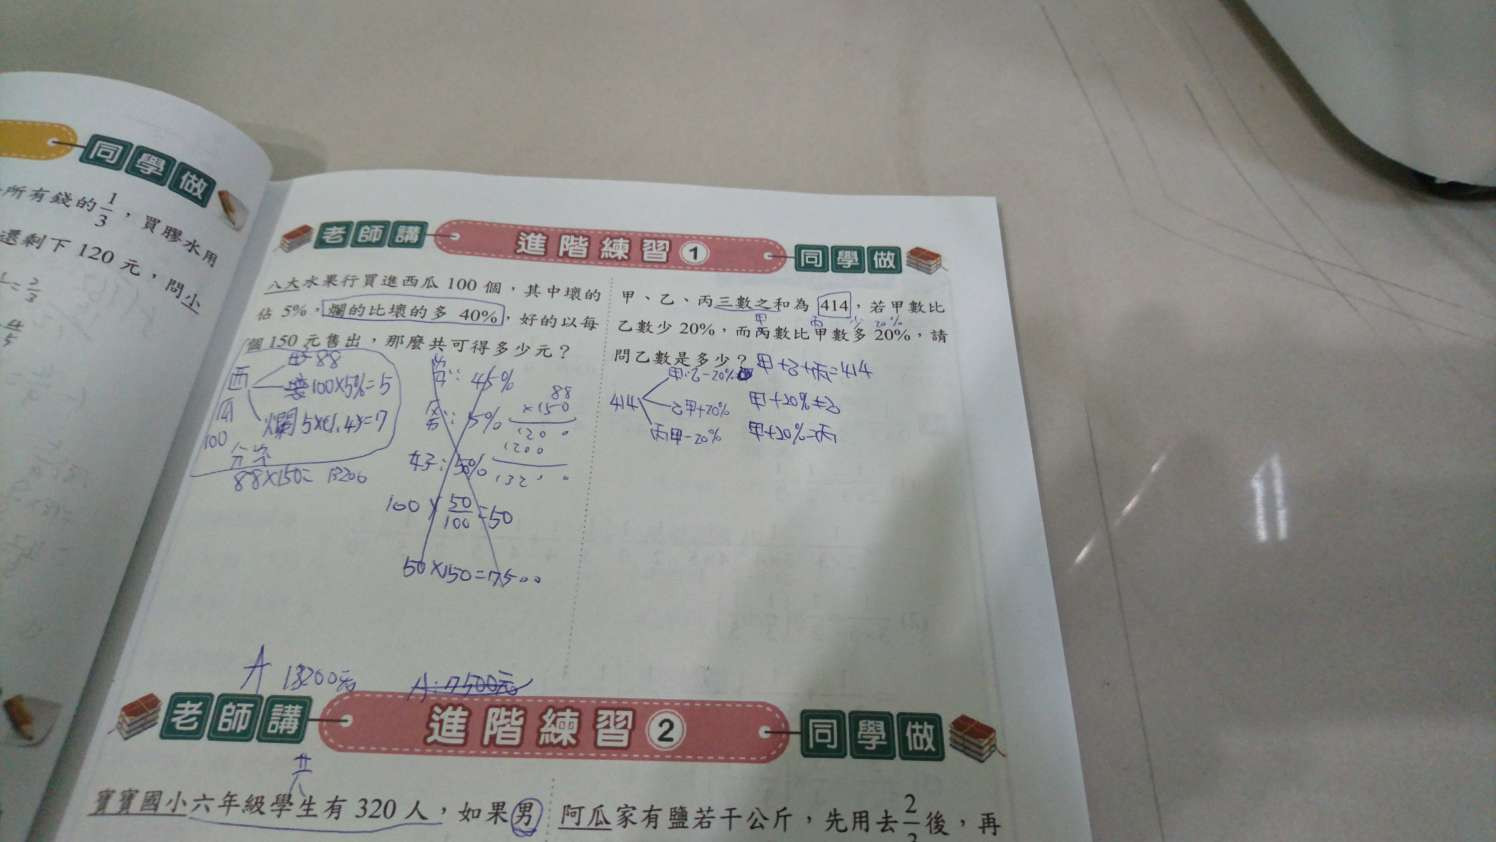 同學做
所有錢的1/3，買膠水用
還剩下 120 元，問小
老師講 進階練習① 同學做
八大水果行買進西瓜 100 個，其中壞的
佔 5%，爛的比壞的多 40%，好的以每
個 150 元售出，那麼共可得多少元？
88
西
壞 100×5%=5
瓜
爛 5×(1.4)=7
100
88×150= 13200
45%
5%
好: 50%
100×50/100=50
50×150=7500
88
×150
A 13200元
A: 7500元
甲、乙、丙三數之和為 414，若甲數比
乙數少 20%，而丙數比甲數多 20%，請
甲 丙 20%
問乙數是多少？
甲+乙+丙=414
甲:乙-20%
414
乙甲+20%
丙甲-20%
甲+20%=乙
甲+20%=丙
老師講 進階練習② 同學做
共
寶寶國小六年級學生有 320 人，如果男
阿瓜家有鹽若干公斤，先用去2/3後，再